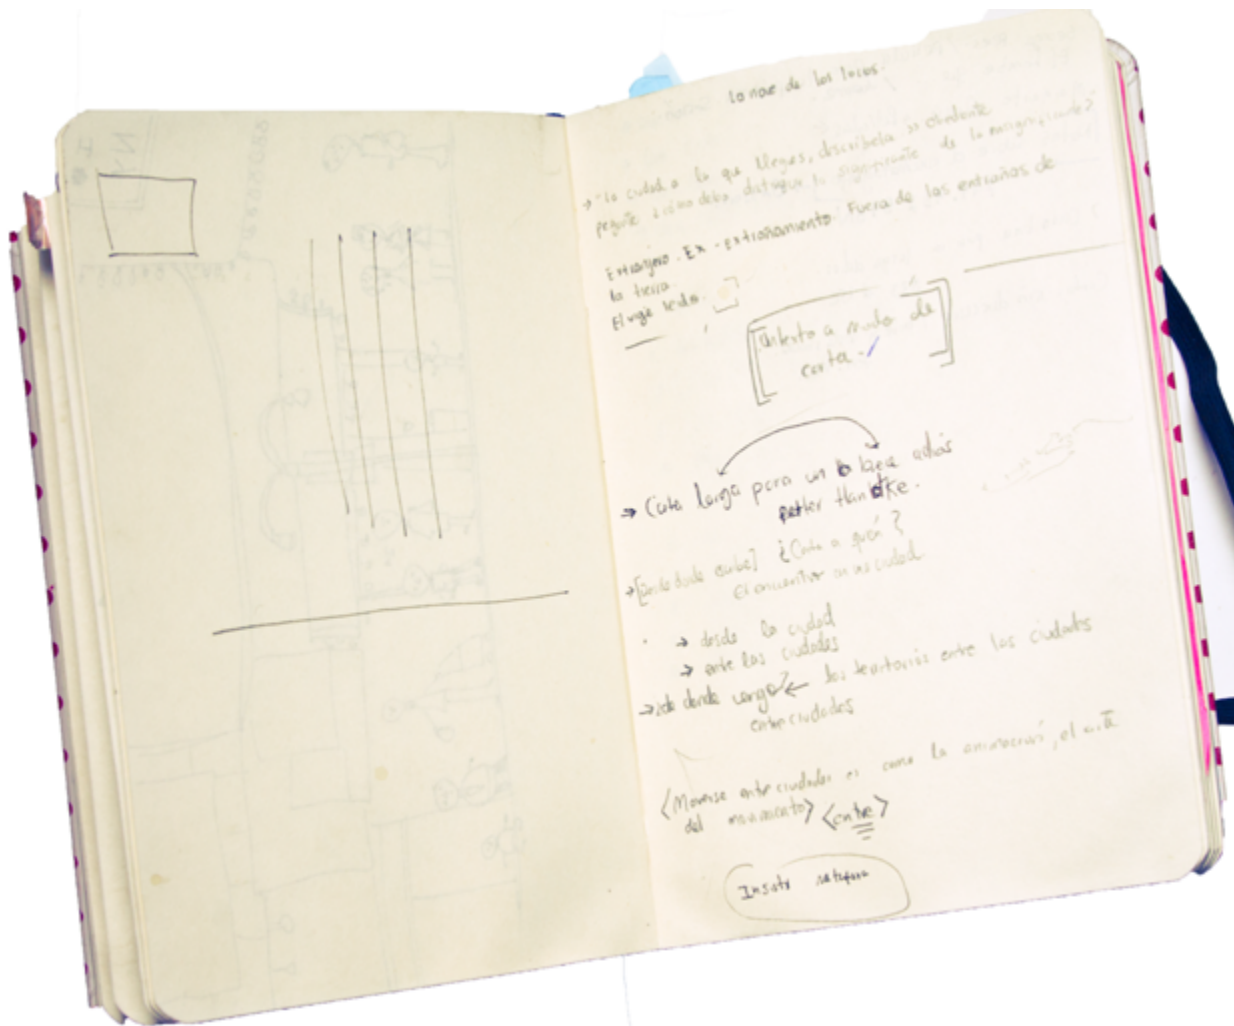 La nave de los locos.
→ "La ciudad a la que llegues, descríbela »
pegunte ¿cómo debo distinguir lo significante de lo insignificante?
Extranjero. Ex - extrañamiento. Fuera de las entrañas de
la tierra.
El viaje lento.
Un texto a modo de
carta.
→ Carta larga para un breve adiós
petter Handke.
→ [Desde donde escribe] ¿Carta a quién?
El encuentro en la ciudad
→ desde la ciudad
→ entre las ciudades
→ ¿de donde vengo? ← los territorios entre las ciudades
entre ciudades
<Moverse entre ciudades es como la animación, el arte
del movimiento> <entre>